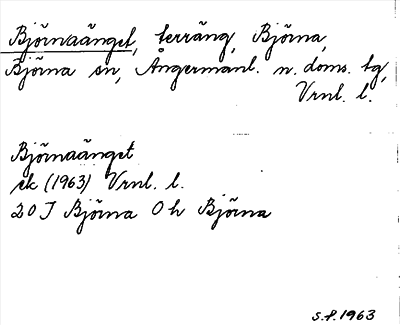 Björnaänget, terräng, Björna,
Björna sn, Ångermanl. n. doms. tg,
Vrnl. l.
Björnaänget
ek (1963) Vrnl. l.
20 J Björna O h Björna
s.f. 1963